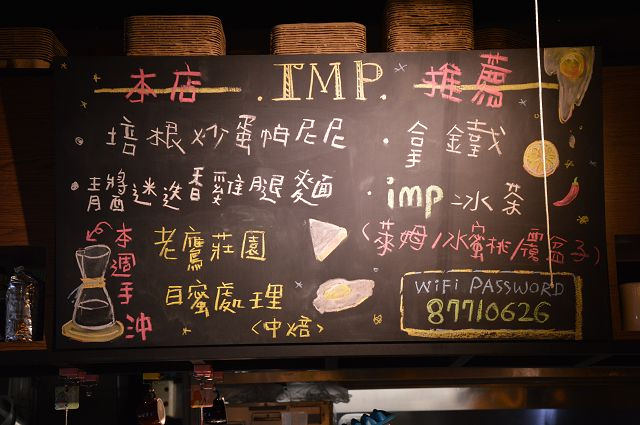 本店 IMP. 推薦
培根炒蛋帕尼尼
青醬迷迭香雞腿麵
拿鐵
imp 冰茶
(萊姆/冰蜜桃/覆盆子)
本週手沖
老鷹莊園
白蜜處理
(中焙)
WiFi PASSWORD
87710626